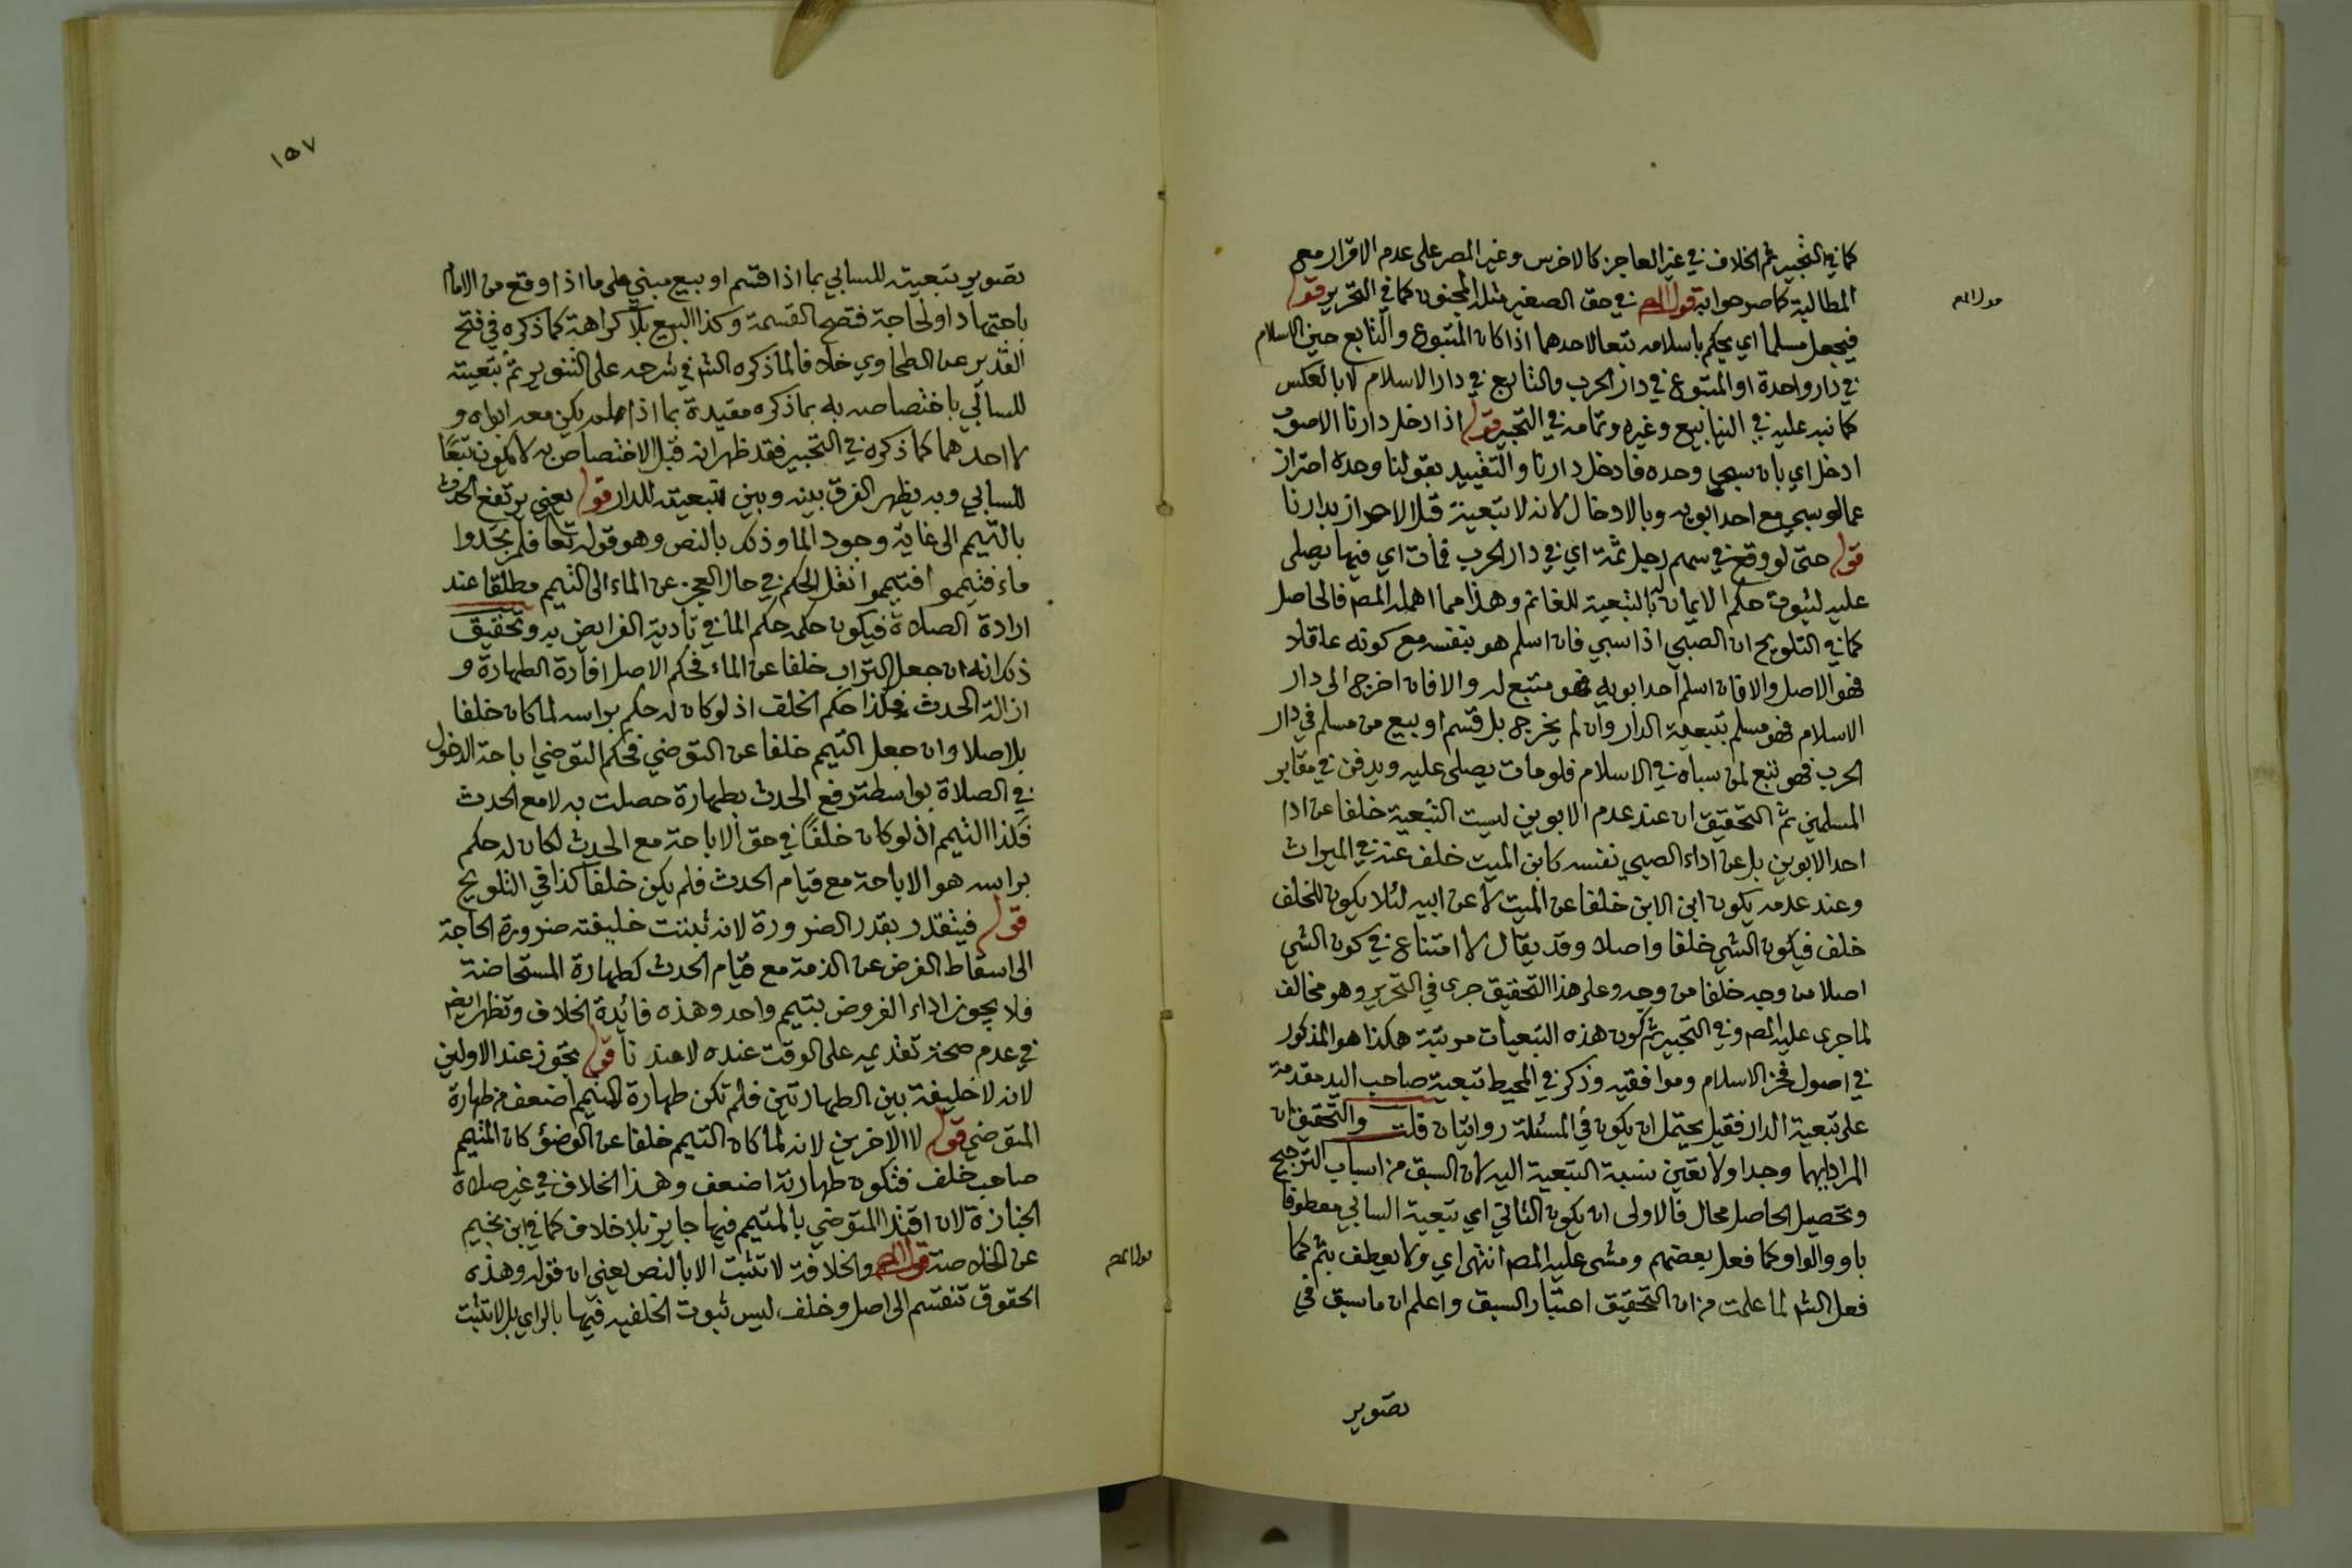 كما في التحبير ثم الخلاف في غير العاجز كالاخرس وغير المصر على عدم الاقرار مع
المطالبة كما صرحوا به قول المص في حق الصغير مثله المجنون كما في التحرير قوله
قول المص
فيجعل مسلما اي يحكم باسلامه تبعا لاحدهما اذا كان المتبوع والتابع حين الاسلام
في دار واحدة او المتبوع في دار الحرب والتابع في دار الاسلام لا بالعكس
كما نبه عليه في الينابيع وغيره وتمامه في التحبير قوله اذا ادخل دارنا الاصوب
ادخل اي بان سبي وحده فادخل دارنا والتقييد بقولنا وحده احتراز
عما لو سبي مع احد ابويه وبالادخال لانه لا تبعية قبل الاحراز بدارنا
قوله حتى لو وقع في سهم رجل ثمة اي في دار الحرب فمات اي فيها يصلى
عليه لثبوت حكم الايمان له بالتبعية للغانم وهذا مما اهمله المص فالحاصل
كما في التلويح ان الصبي اذا سبي فان اسلم هو بنفسه مع كونه عاقلا
فهو الاصل والا فان اسلم احد ابويه فهو متبع له والا فان اخرج الى دار
الاسلام فهو مسلم بتبعية الدار وان لم يخرج بل قسم او بيع من مسلم في دار
الحرب فهو تبع لمن سباه في الاسلام فلو مات يصلى عليه ويدفن في مقابر
المسلمين ثم التحقيق ان عند عدم الابوين ليست التبعية خلفا عن ادا
احد الابوين بل عن اداء الصبي نفسه كابن الميت خلف عنه في الميراث
وعند عدمه يكون ابن الابن خلفا عن الميت لا عن ابيه لئلا يكون للخلف
خلف فيكون الشي خلفا واصلا وقد يقال لا امتناع في كون الشي
اصلا من وجه خلفا من وجه وعلى هذا التحقيق جرى في التحرير وهو مخالف
لما جرى عليه المص وفي التحبير ثم كون هذه التبعيات مرتبة هكذا هو المذكور
في اصول فخر الاسلام وموافقيه وذكر في المحيط تبعية صاحب اليد مقدمة
على تبعية الدار فقيل يحتمل ان يكون في المسئلة روايتان قلت والتحقيق ان
المراد ايهما وجد اولا تعين نسبة التبعية اليه لان السبق من اسباب الترجيح
وتحصيل الحاصل محال فالاولى ان يكون الثاني اي تبعية السابي معطوفا
باو والواو كما فعل بعضهم ومشى عليه المص انتهى اي ولا يعطف بثم كما
فعل الش لما علمت من ان التحقيق اعتبار السبق واعلم ان ما سبق في
تصوير
١٥٧
تصوير تبعيته للسابي بما اذا قسم او بيع مبني على ما اذا وقع من الامام
باجتهاد او لحاجة فتصح القسمة وكذا البيع بلا كراهة كما ذكره في فتح
القدير عن الطحاوي خلافا لما ذكره الش في شرحه على التنوير ثم تبعيته
للسابي باختصاصه به بما ذكره مقيدة بما اذا لم يكن معه ابواه و
لا احدهما كما ذكره في التحبير فقد ظهر انه قبل الاختصاص به لا يكون تبعًا
للسابي وبه يظهر الفرق بينه وبين تبعيته للدار قوله يعني يرتفع الحدث
بالتيمم الى غاية وجود الما وذلك بالنص وهو قوله تعا فلم تجدوا
ماء فتيمموا فتيمموا انقل الحكم في حال العجز عن الماء الى التيمم مطلقا عند
ارادة الصلاة فيكون حكمه حكم الما في تادية الفرايض به وتحقيق
ذلك انه ان جعل التراب خلفا عن الماء فحكم الاصل افادة الطهارة و
ازالة الحدث فكذا حكم الخلف اذ لو كان له حكم براسه لما كان خلفا
بل اصلا وان جعل التيمم خلفا عن التوضي فحكم التوضي اباحة الدخول
في الصلاة بواسطة رفع الحدث بطهارة حصلت به لا مع الحدث
فكذا التيمم اذ لو كان خلفًا في حق الاباحة مع الحدث لكان له حكم
براسه هو الاباحة مع قيام الحدث فلم يكن خلفا كذا في التلويح
قوله فيتقدر بقدر الضرورة لانه ثبتت خليفته ضرورة الحاجة
الى اسقاط الفرض عن الذمة مع قيام الحدث كطهارة المستحاضة
فلا يجوز اداء الفروض بتيمم واحد وهذه فائدة الخلاف وتظهر ايضا
في عدم صحة تقديمه على الوقت عنده لا عندنا قوله يجوز عند الاولين
لانه لا خليفة بين الطهارتين فلم تكن طهارة التيمم اضعف من طهارة
المتوضي قوله لا الاخرين لانه لما كان التيمم خلفا عن الوضؤ كان المتيمم
صاحب خلف فتكون طهارته اضعف وهذا الخلاف في غير صلاة
الجنازة لان اقتدا المتوضي بالمتيمم فيها جايز بلا خلاف كما في ابن نجيم
عن الخلاصة قول المص والخلافة لا تثبت الا بالنص يعني ان قوله وهذه
قول المص
الحقوق تنقسم الى اصل وخلف ليس ثبوت الخلفيه فيها بالراي بل لا تثبت